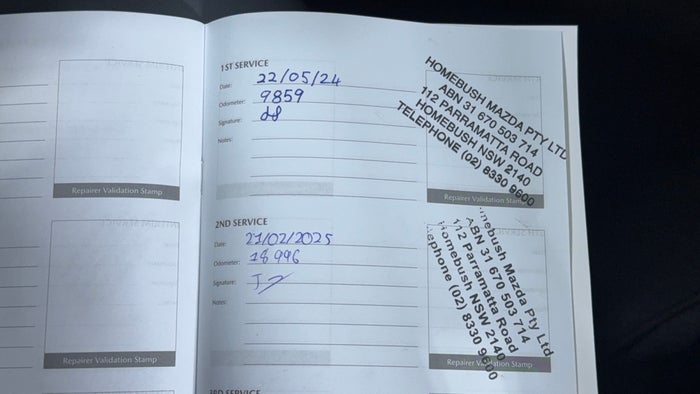 Repairer Validation Stamp
Repairer Validation Stamp
1ST SERVICE
Date: 22/05/24
Odometer: 9859
Signature:
Notes:
HOMEBUSH MAZDA PTY LTD
ABN 31 670 503 714
112 PARRAMATTA ROAD
HOMEBUSH NSW 2140
TELEPHONE (02) 8330 9600
Repairer Validation Stamp
2ND SERVICE
Date: 21/02/2025
Odometer: 18996
Signature:
Notes:
mebush Mazda Pty Ltd
ABN 31 670 503 714
112 Parramatta Road
Homebush NSW 2140
ephone (02) 8330 9600
Repairer Validation Stamp
3RD SERVICE